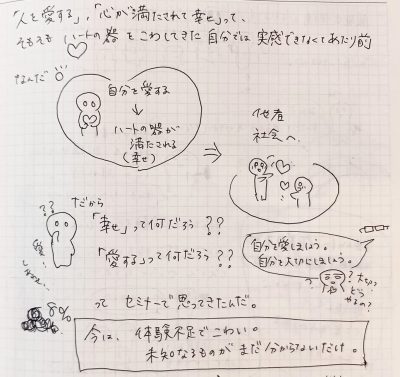 「人を愛する」,「心が満たされて幸せ」って、
そもそも ハートの器 をこわしてきた自分では 実感できなくてあたり前
なんだ
自分を愛する
↓
ハートの器が
満たされる
(幸せ)
⇒
他者
社会へ
??
だから
「幸せ」って何だろう??
「愛する」って何だろう??
自分を愛しましょう。
自分を大切にしましょう。
?
?大切?
どう
やるの?
って セミナーで思ってきたんだ。
8%
今は、体験不足でこわい。
未知なるものがまだ分からないだけ。